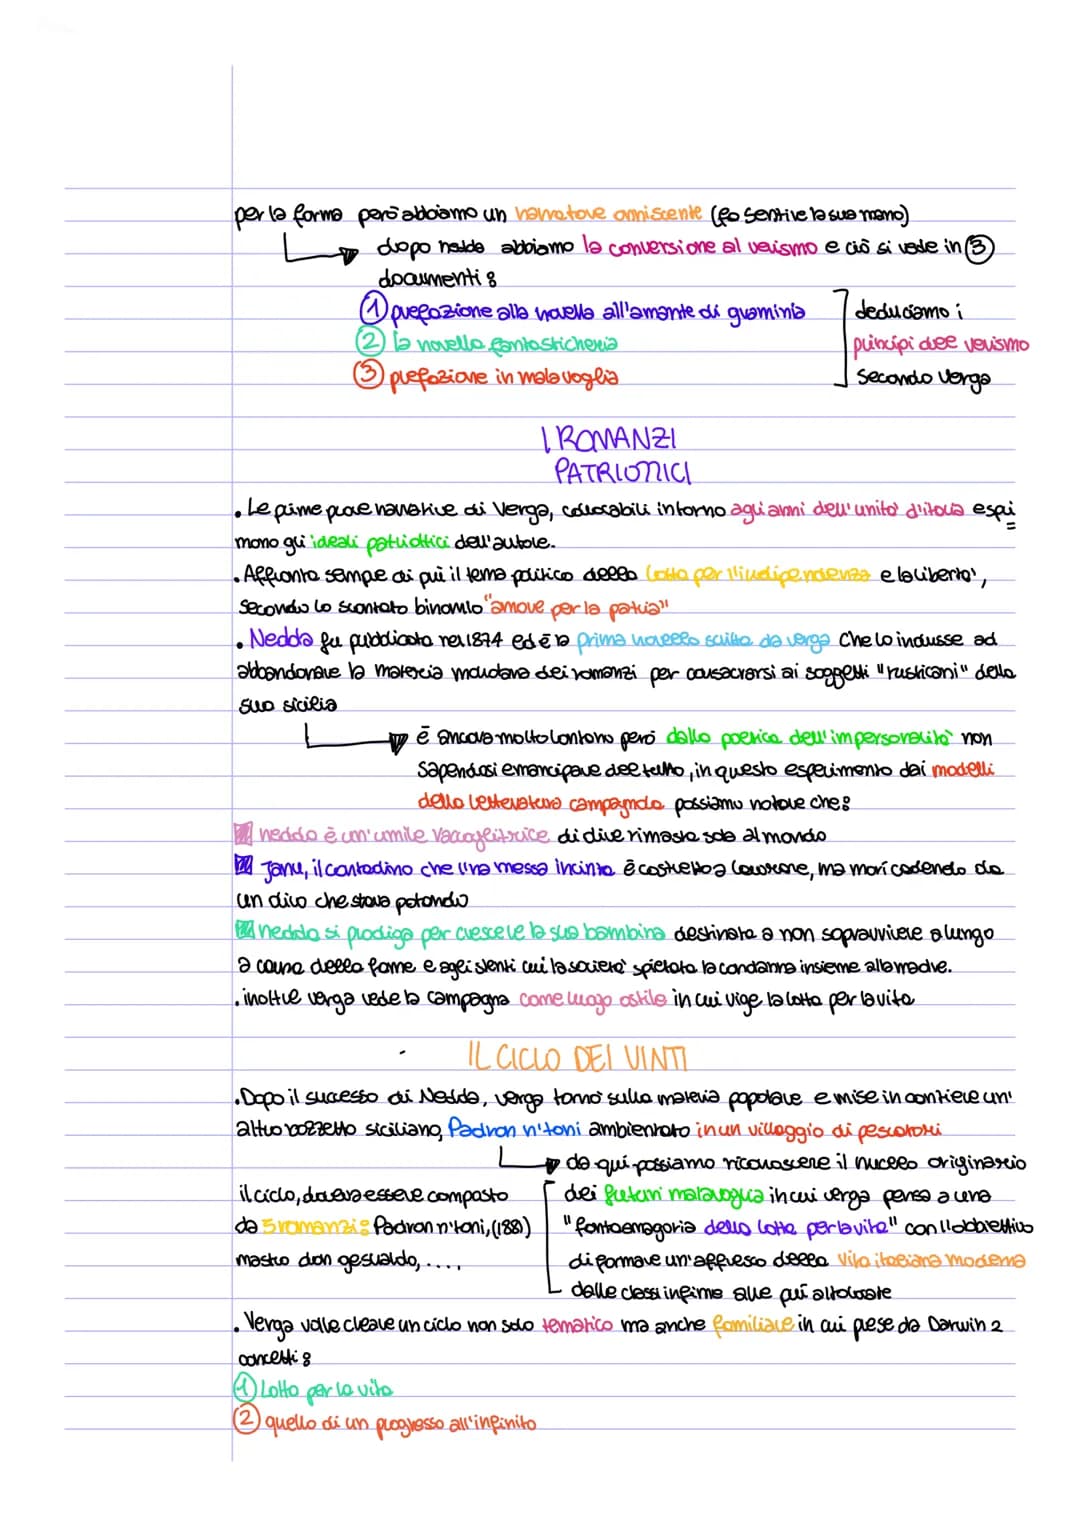 per la forma però abbiamo un narratore onnisciente (fa sentire la sua mano)
dopo nedda abbiamo la conversione al verismo e ciò si vede in 3
documenti:
1 prefazione alla novella all'amante di graminia
2 la novella fantasticheria
3 prefazione in malavoglia
deduciamo i
principi del verismo
secondo verga
I ROMANZI
PATRIOTTICI
• Le prime prove narrative di Verga, collocabili intorno agli anni dell'unità d'italia espri
mono gli ideali patriottici dell'autore.
• Affronta sempre di più il tema politico della lotta per l'indipendenza e la libertà,
secondo lo scontato binomio "amore per la patria"
• Nedda fu pubblicata nel 1874 ed è la prima novella scritta da verga che lo indusse ad
abbandonare la materia mondana dei romanzi per consacrarsi ai soggetti "rusticani" della
sua sicilia
è ancora molto lontano però dalla poetica dell'impersonalità non
sapendosi emancipare del tutto, in questo esperimento dai modelli
della letteratura campagnola possiamo notare che:
nedda è un'umile raccoglitrice di olive rimasta sola al mondo
Janu, il contadino che l'ha messa incinta è costretto a lavorare, ma morì cadendo da
un olivo che stava potando
nedda si prodiga per crescere la sua bambina destinata a non sopravvivere a lungo
a causa della fame e agli stenti cui la società spietata la condanna insieme alla madre.
• inoltre verga vede la campagna come luogo ostile in cui vige la lotta per la vita
IL CICLO DEI VINTI
• Dopo il successo di Nedda, verga tornò sulla materia popolare e mise in cantiere un'
altro bozzetto siciliano, Padron n'toni ambientato in un villaggio di pescatori
da qui possiamo riconoscere il nucleo originario
dei futuri malavoglia in cui verga pensa a una
"fantasmagoria della lotta per la vita" con l'obbiettivo
di formare un'affresco della vita italiana moderna
dalle classi infime alle più altolocate
il ciclo, doveva essere composto
da 5 romanzi: Padron n'toni, (188)
mastro don gesualdo, ....,
• Verga volle creare un ciclo non solo tematico ma anche familiare in cui prese da Darwin 2
concetti:
1 Lotta per la vita
2 quello di un progresso all'infinito